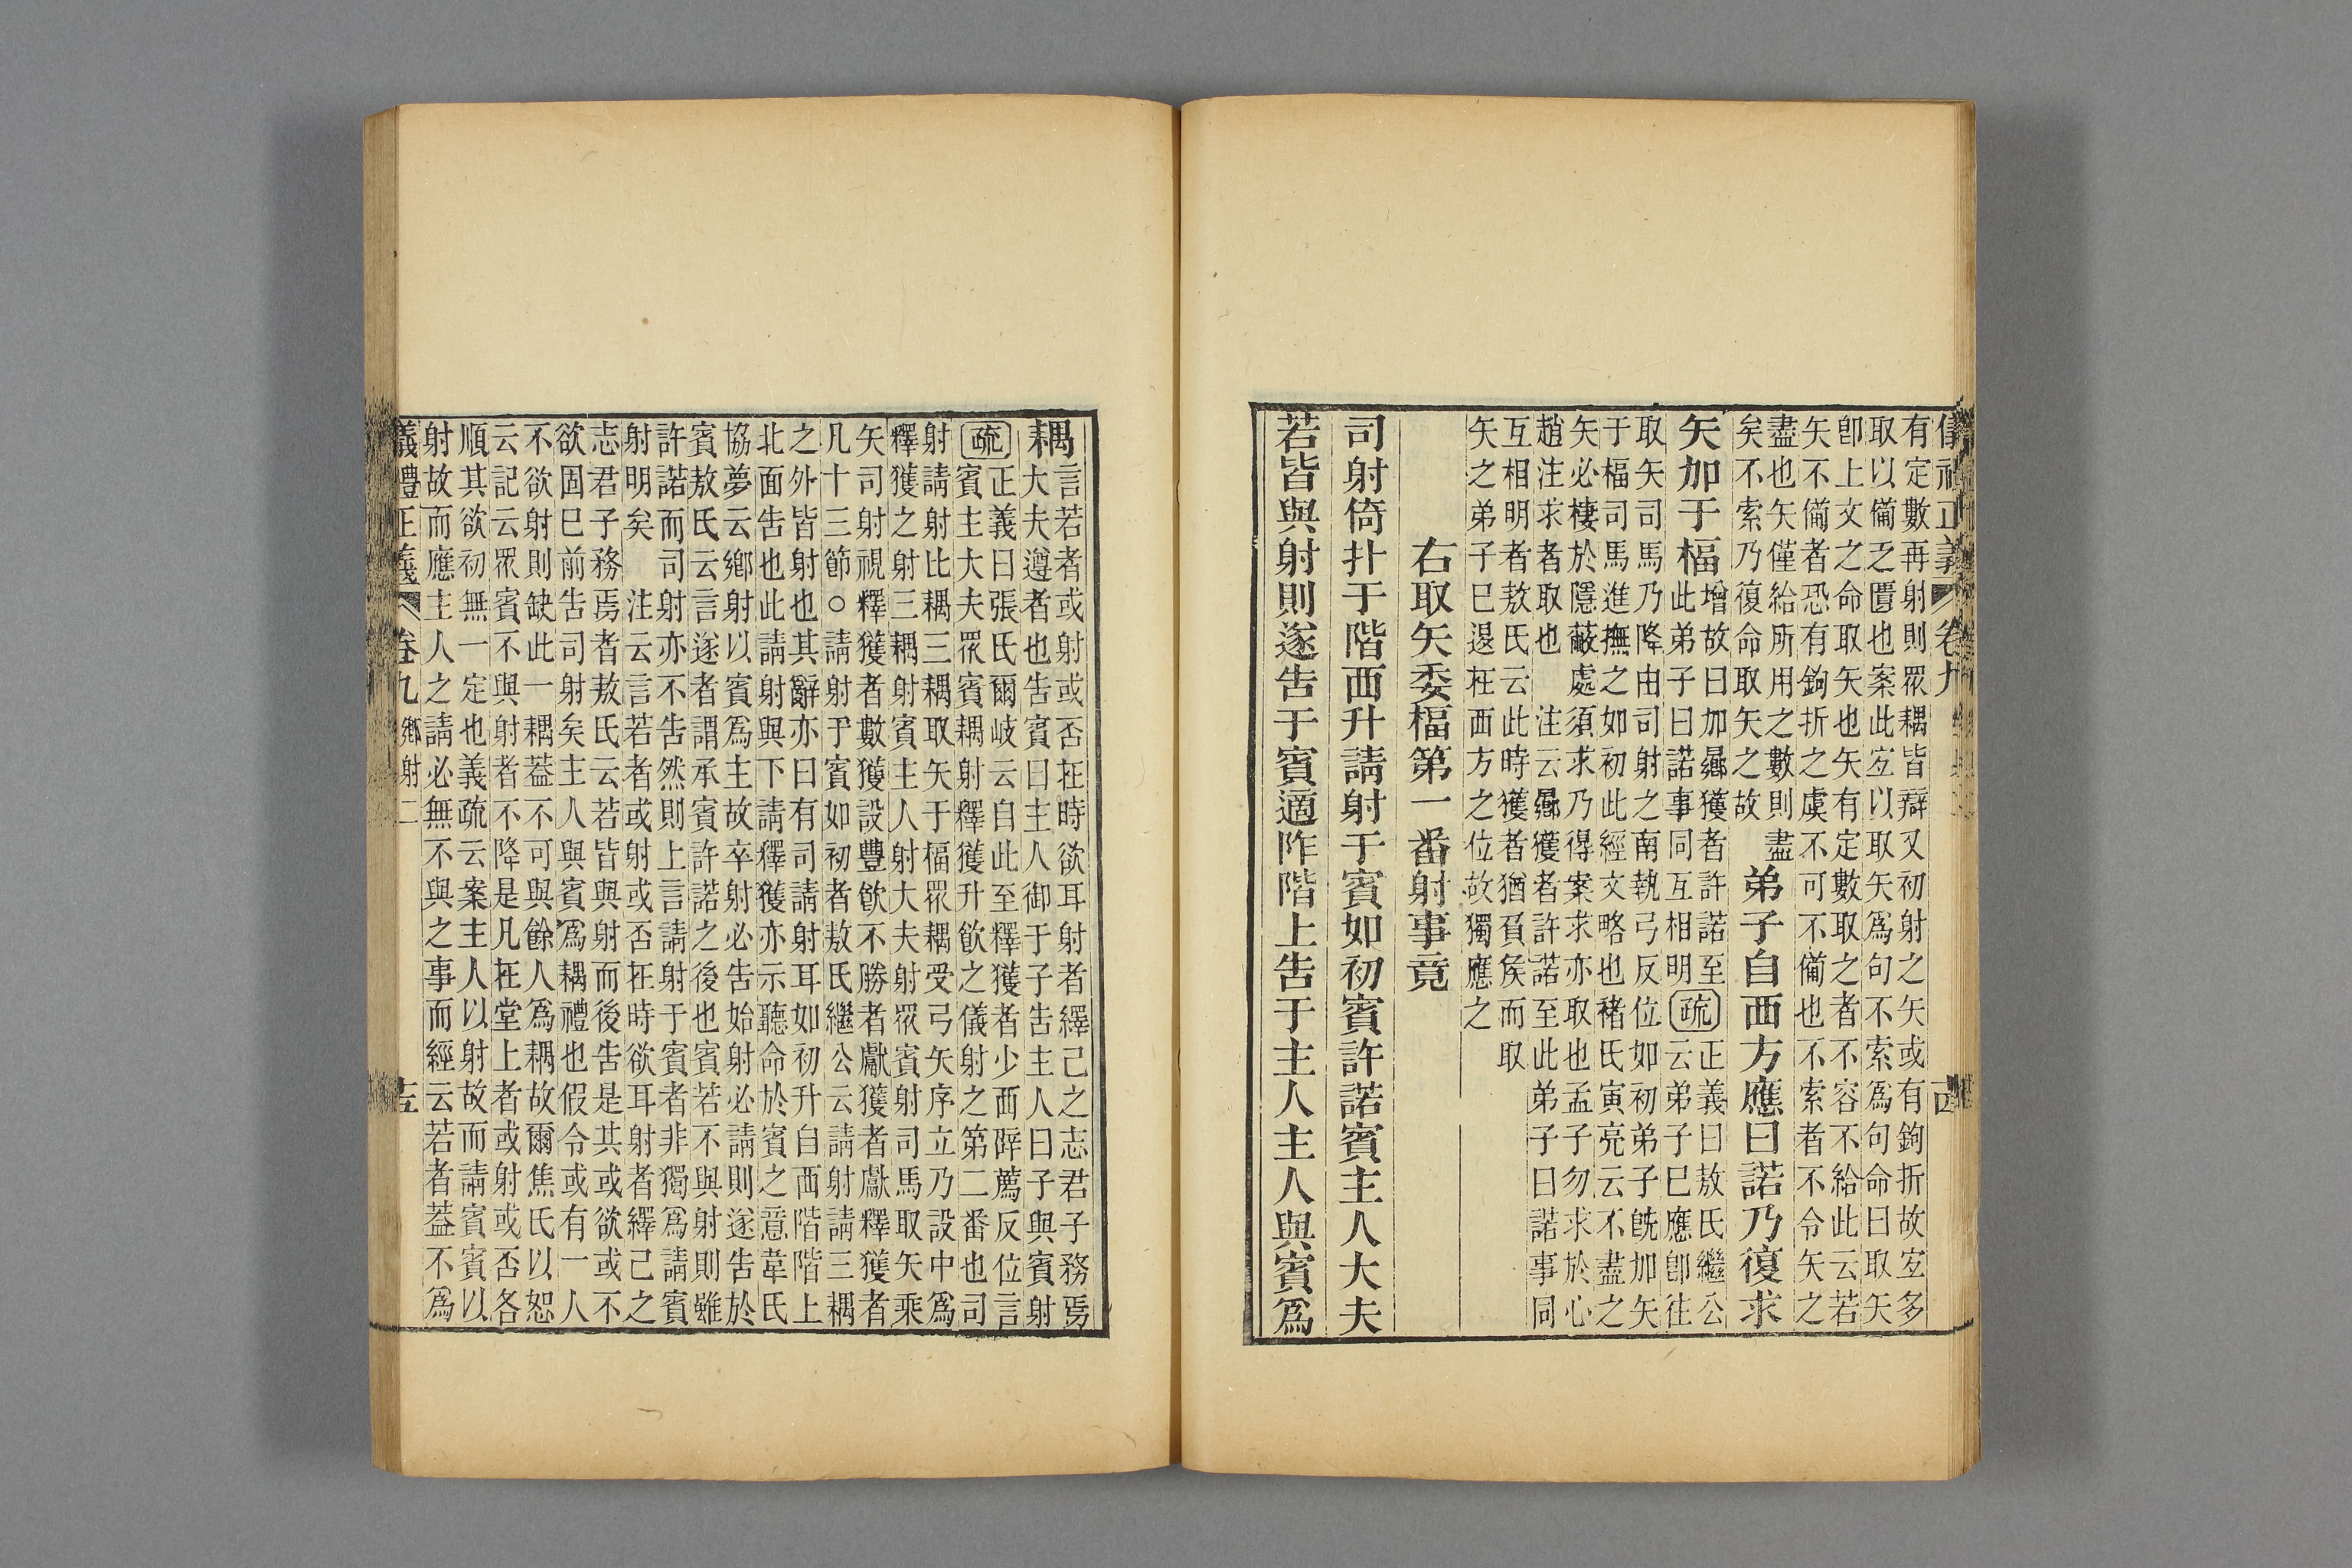 儀禮正義 卷九
有定數再射則眾耦皆辯又初射之矢或有鉤折故宐多
取以僃乏匱也案此宐以取矢爲句不索爲句命曰取矢
卽上文之命取矢也矢有定數取之者不容不給此云若
矢不僃者恐有鉤折之虞不可不僃也不索者不令矢之
盡也矢僅給所用之數則盡
矣不索乃復命取矢之故
弟子自西方應曰諾乃復求
矢加于楅
增故曰加曏獲者許諾至
此弟子曰諾事同互相明
疏
正義曰敖氏繼公
云弟子巳應卽往
取矢司馬乃降由司射之南執弓反位如初弟子旣加矢
于楅司馬進撫之如初此經文略也褚氏寅亮云不盡之
矢必棲於隱蔽處須求乃得案求亦取也孟子勿求於心
趙注求者取也 注云曏獲者許諾至此弟子曰諾事同
互相明者敖氏云此時獲者猶負矦而取
矢之弟子巳退在西方之位故獨應之
右取矢委楅第一番射事竟
司射倚扑于階西升請射于賓如初賓許諾賓主人大夫
若皆與射則遂告于賓適阼階上告于主人主人與賓爲
耦
言若者或射或否在時欲耳射者繹己之志君子務焉
大夫遵者也告賓曰主人御于子告主人曰子與賓射
疏
正義曰張氏爾岐云自此至釋獲者少西辟薦反位言
賓主大夫眾賓耦射釋獲升飮之儀射之第二番也司
射請射比耦三耦取矢于楅眾耦受弓矢序立乃設中爲
釋獲之射三耦射賓主人射大夫射眾賓射司馬取矢乘
矢司射視釋獲者數獲設豐飮不勝者獻獲者獻釋獲者
凡十三節○請射于賓如初者敖氏繼公云請射請三耦
之外皆射也其辭亦曰有司請射耳如初升自西階階上
北面告也此請射與下請釋獲亦示聽命於賓之意韋氏
協夢云鄉射以賓爲主故卒射必告始射必請則遂告於
賓敖氏云言遂者謂承賓許諾之後也賓若不與射則雖
許諾而司射亦不告然則上言請射于賓者非獨爲請賓
射明矣 注云言若者或射或否在時欲耳射者繹己之
志君子務焉者敖氏云若皆與射而後告是其或欲或不
欲固巳前告司射矣主人與賓爲耦禮也假令或有一人
不欲射則缺此一耦葢不可與餘人爲耦故爾焦氏以恕
云記云眾賓不與射者不降是凡在堂上者或射或否各
順其欲初無一定也義疏云案主人以射故而請賓賓以
射故而應主人之請必無不與之事而經云若者葢不爲
儀禮正義 卷九 鄉射二